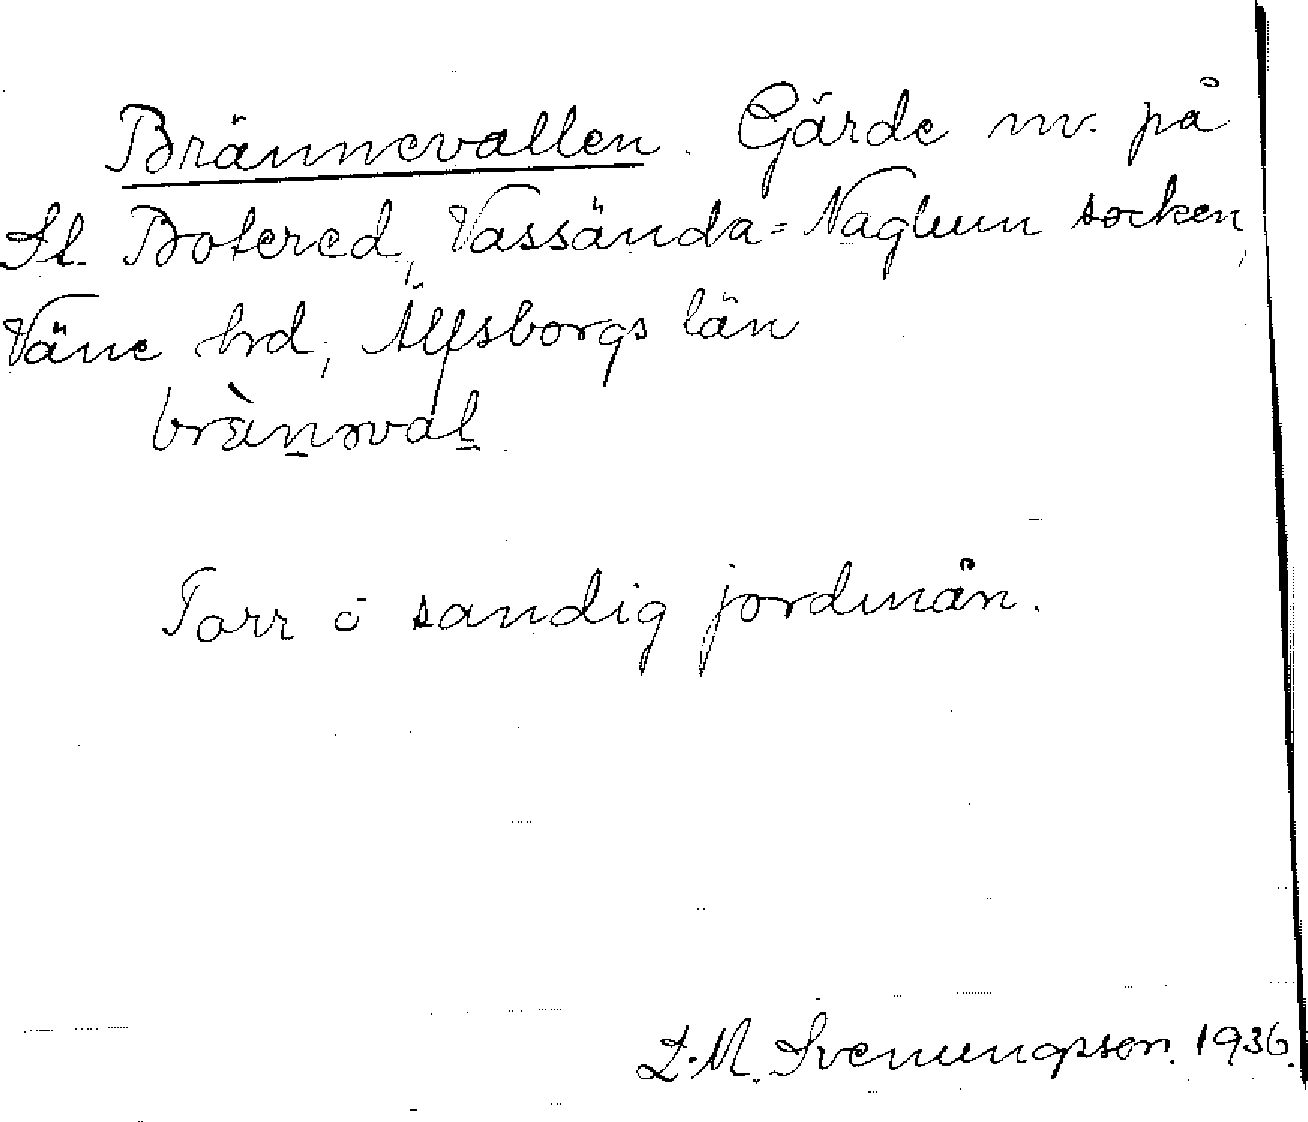 Brännevallen. Gärde nv. på
St. Botered, Vassända-Naglum socken,
Väne hrd, Älfsborgs län
brànəval
Torr o sandig jordmån.
L.M. Svenungsson. 1936.